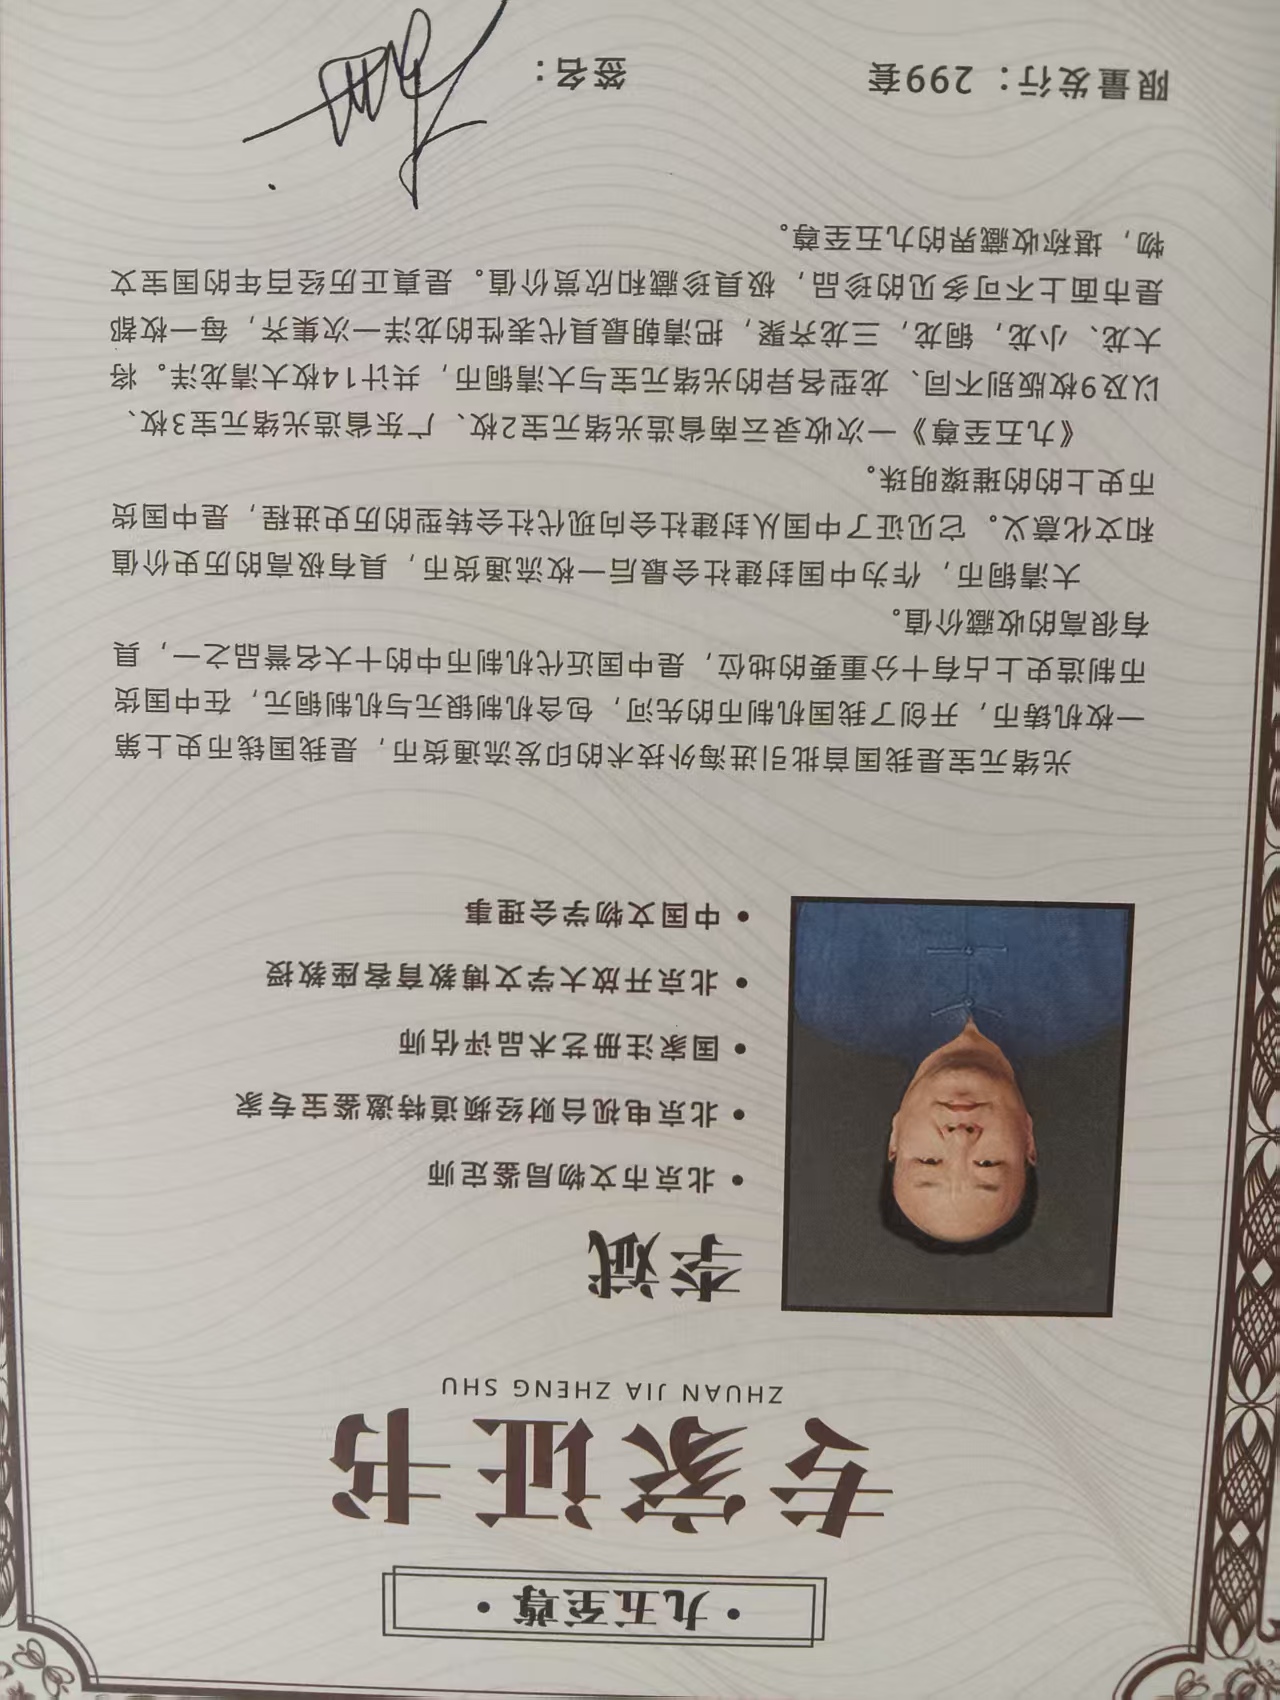 ·九五至尊·
专家证书
ZHUAN JIA ZHENG SHU
李斌
•北京市文物局鉴定师
•北京电视台财经频道特邀鉴宝专家
•国家注册艺术品评估师
•北京开放大学文博教育客座教授
•中国文物学会理事
光绪元宝是我国首批引进海外技术的印发流通货币，是我国钱币史上第
一枚机铸币，开创了我国机制币的先河，包含机制银元与机制铜元，在中国货
币制造史上占有十分重要的地位，是中国近代机制币中的十大名誉品之一，具
有很高的收藏价值。
大清铜币，作为中国封建社会最后一枚流通货币，具有极高的历史价值
和文化意义。它见证了中国从封建社会向现代社会转型的历史进程，是中国货
币史上的的璀璨明珠。
《九五至尊》一次收录云南省造光绪元宝2枚、广东省造光绪元宝3枚、
以及9枚版别不同、龙型各异的光绪元宝与大清铜币，共计14枚大清龙洋。将
大龙、小龙，铜龙，三龙齐聚，把清朝最具代表性的龙洋一次集齐，每一枚都
是市面上不可多见的珍品，极具珍藏和欣赏价值。是真正历经百年的国宝文
物，堪称收藏界的九五至尊。
限量发行：299套 签名：